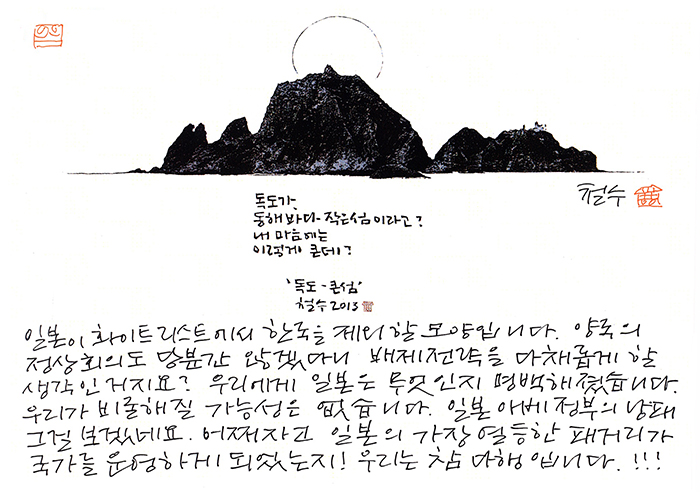 철수
독도가,
동해 바다 작은섬 이라고?
내 마음에는
이렇게 큰데?
'독도-큰섬'
철수 2013
일본이 화이트리스트에서 한국을 제외할 모양입니다. 양국의
정상회의도 당분간 않겠다니 배제전략을 다채롭게 할
생각인거지요? 우리에게 일본은 무엇인지 명백해졌습니다.
우리가 비굴해질 가능성은 없습니다. 일본 아베정부의 낭패
그걸 보겠네요. 어쩌자고 일본의 가장 열등한 패거리가
국가를 운영하게 되었는지! 우리는 참 다행입니다. !!!